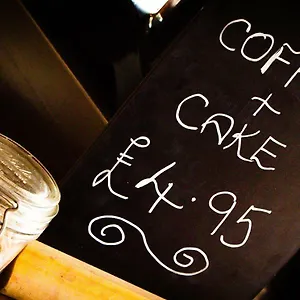 COFF
+
CAKE
£4.95